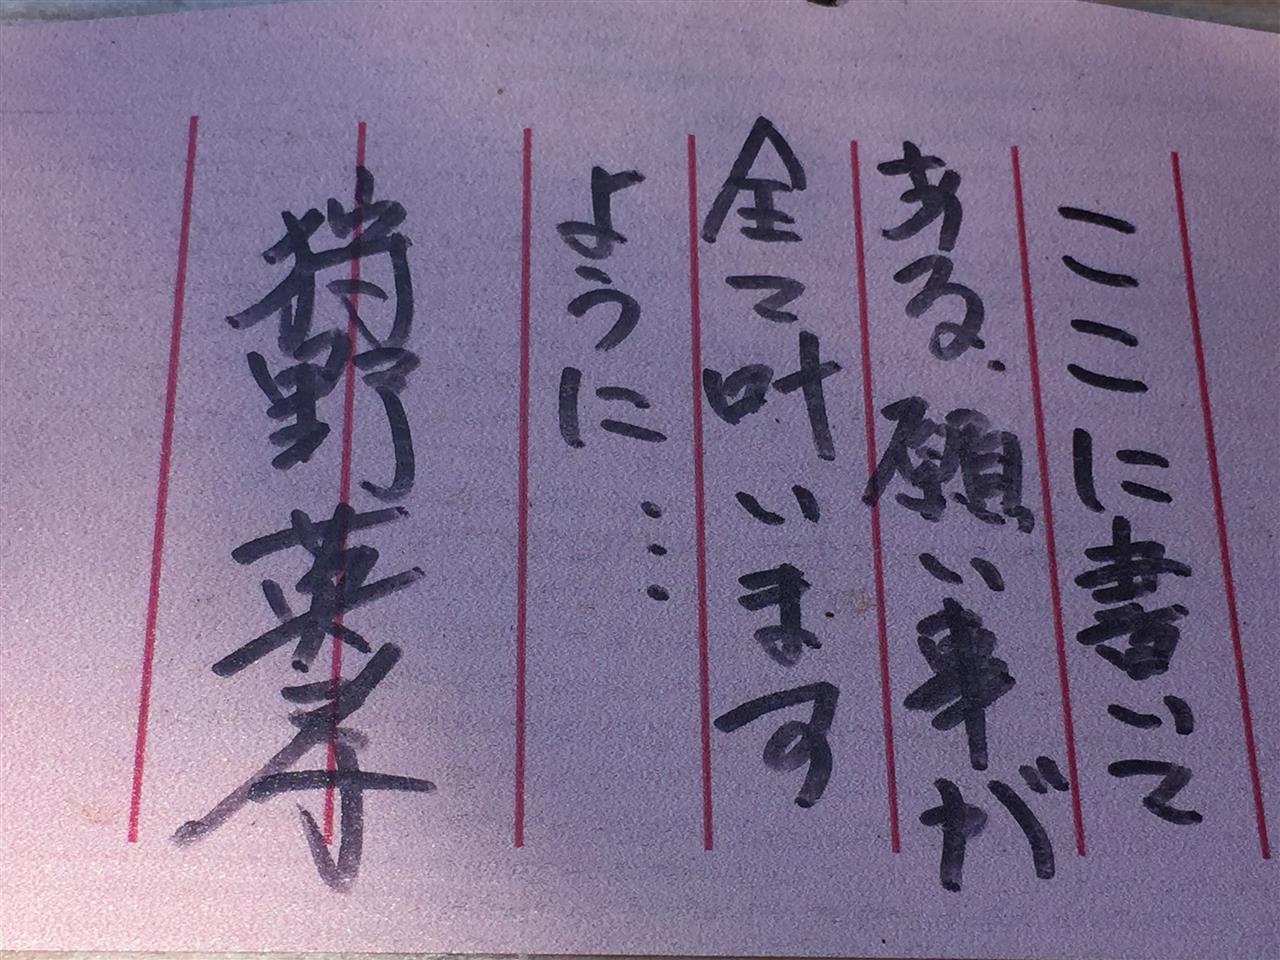 ここに書いて
ある願い事が
全て叶います
ように…
狩野英孝